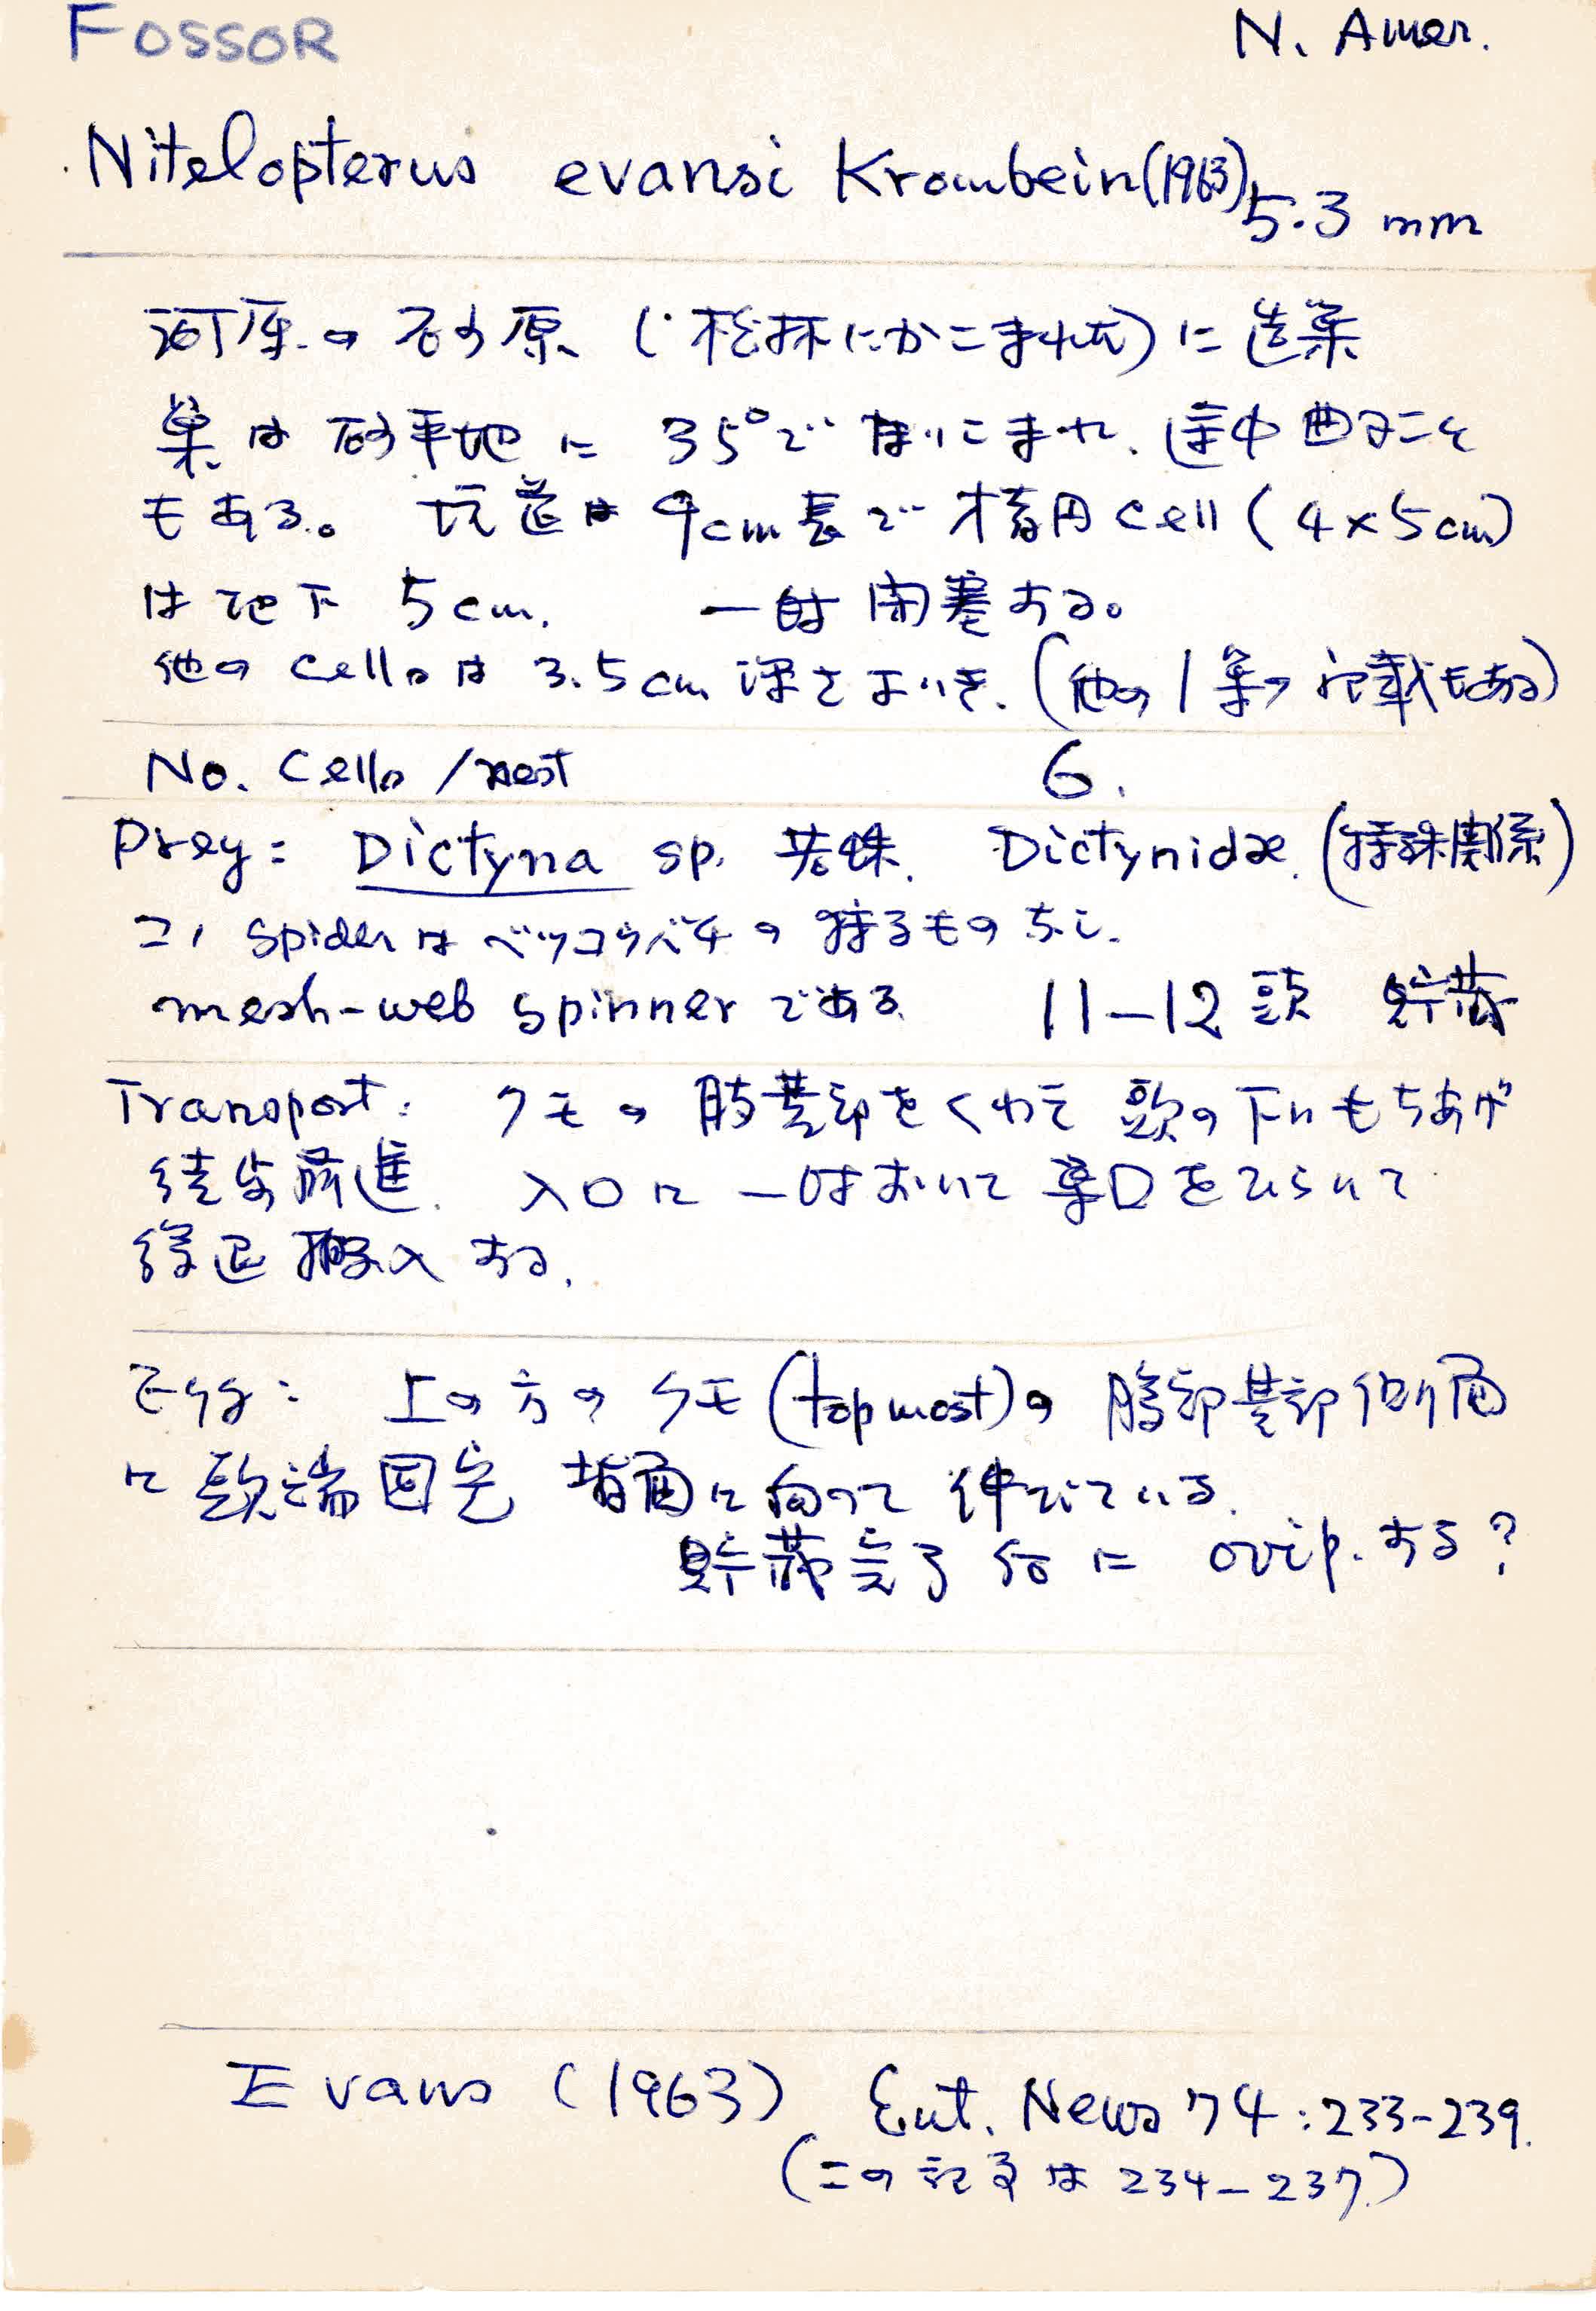 FOSSOR
N. Amer.
Nitelopterus evansi Krombein (1963) 5.3 mm
河原の砂原(松林にかこまれた)に造巣
巣は砂平地に 35°で な に ま れ、途中曲ることも
もある。坑道は 9cm長で 楕円 cell (4×5cm)
は地下 5cm. 一時閉塞する。
他の cells は 3.5cm 深さ (他の1巣の記載もある)
No. cells /nest 6.
Prey: Dictyna sp. 蜘蛛. Dictynidae. (特殊関係)
コノ spider はベッコウバチの狩るもの
mesh-web spinner である 11–12頭 貯蔵
Transport: クモの肢基部をくわえ頭の下にもちあげ
徒歩前進. 入口に一時おいて巣口をひらいて
後退搬入する.
Egg: 上の方のクモ(topmost)の腹部基部側面
に頭端固定 背面に向って伸びている.
貯蔵完了後に ovip. する?
Evans (1963) Ent. News 74:233-239.
(この記事は 234–237.)